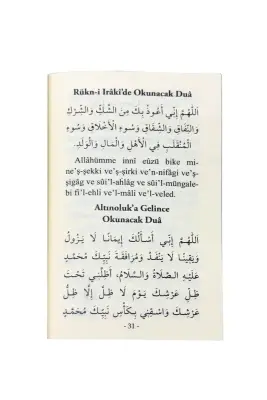 Rükn-i Irâkî'de Okunacak Duâ
اَللّٰهُمَّ إِنِّي أَعُوذُ بِكَ مِنَ الشَّكِّ وَالشِّرْكِ
وَالنِّفَاقِ وَالشِّقَاقِ وَسُوءِ الْأَخْلَاقِ وَسُوءِ
الْمُنْقَلَبِ فِي الْأَهْلِ وَالْمَالِ وَالْوَلَدِ.
Allâhümme innî eûzü bike mi-
ne'ş-şekki ve'ş-şirki ve'n-nifâgi ve'ş-
şigâg ve sûi'l-ahlâg ve sûi'l-müngale-
bi fi'l-ehli ve'l-mâli ve'l-veled.
Altınoluk'a Gelince
Okunacak Duâ
اَللّٰهُمَّ إِنِّي أَسْأَلُكَ إِيمَانًا لَا يَزُولُ
وَيَقِينًا لَا يَنْفَدُ وَمُرَافَقَةَ نَبِيِّكَ مُحَمَّدٍ
عَلَيْهِ الصَّلَاةُ وَالسَّلَامُ، أَظِلَّنِي تَحْتَ
ظِلِّ عَرْشِكَ يَوْمَ لَا ظِلَّ إِلَّا ظِلُّ
عَرْشِكَ وَاسْقِنِي بِكَأْسِ نَبِيِّكَ مُحَمَّدٍ
- 31 -